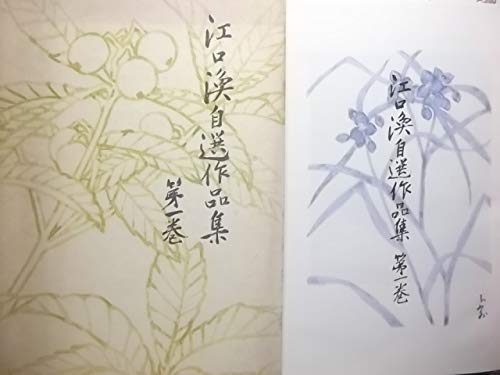 江口渙自選作品集
第一巻
江口渙自選作品集 第一巻